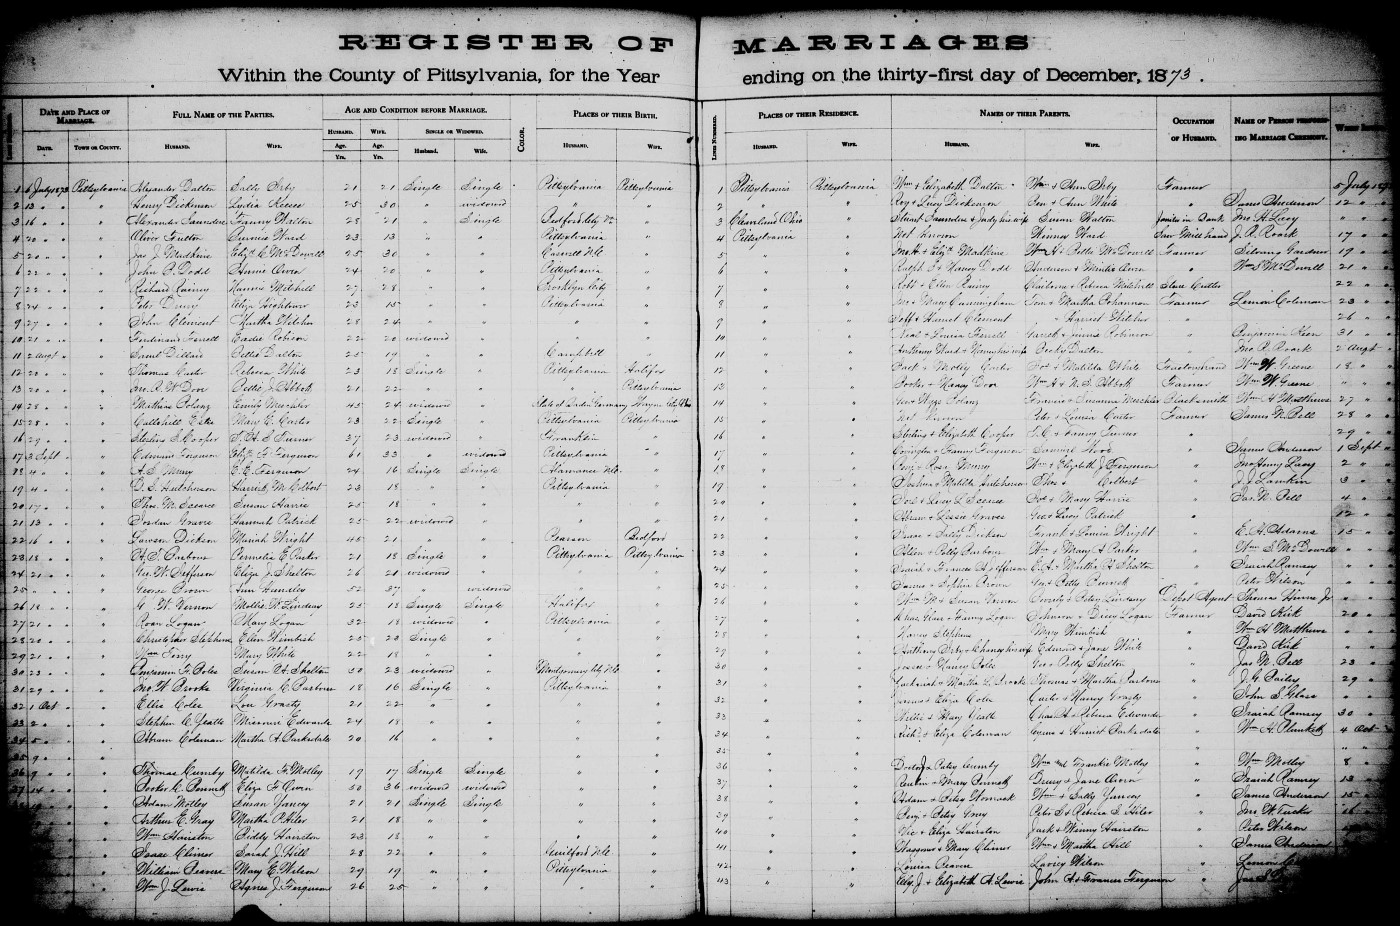 REGISTER OF MARRIAGES
Within the County of Pittsylvania, for the Year ending on the thirty-first day of December, 1873.
DATE AND PLACE OF MARRIAGE. FULL NAME OF THE PARTIES. AGE AND CONDITION BEFORE MARRIAGE. COLOR. PLACES OF THEIR BIRTH. LINES NUMBERED. PLACES OF THEIR RESIDENCE. NAMES OF THEIR PARENTS. OCCUPATION OF HUSBAND. NAME OF PERSON PERFORMING MARRIAGE CEREMONY.
DATE. TOWN OR COUNTY. HUSBAND. WIFE. HUSBAND. WIFE. SINGLE OR WIDOWED. HUSBAND. WIFE. HUSBAND. WIFE. HUSBAND. WIFE.
Age. Age. Husband. Wife.
Yrs. Yrs.
1 6 July 1873 Pittsylvania Alexander Dalton Sally Irby 21 21 Single Single Pittsylvania Pittsylvania 1 Pittsylvania Pittsylvania Wm & Elizabeth Dalton Wm & Ann Irby Farmer 5 July
2 13 " " Henry Dickinson Lydia Reese 25 30 " widowed " " 2 " " & Lucy Dickinson Ben & Ann White " James Anderson 12 "
3 16 " " Alexander Saunders Fanny Walton 28 21 " Single Bedford City Va " 3 Cleaveland Ohio " Stuart Saunders & Judy his wife Susan Walton Janitor in Bank Jno H Lacy " "
4 20 " " Oliver Fulton Ward 23 13 " " Pittsylvania " 4 Pittsylvania " Not known Winney Ward Saw Mill hand J. R. Roark 17 "
5 20 " " Jas J. Matkins Elizth C. McDowell 25 30 " " Caswell N.C. " 5 " " Jno H & Elizth Matkins Wm H & Bettie McDowell Farmer Silvany Gardner 19 "
6 22 " " John P. Dodd Annie Owen 24 20 " " Pittsylvania " 6 " " Ralph S & Nancy Dodd Anderson & Owen " Wm S McDowell 21 "
7 22 " " Richard Rainey Nannie Mitchell 27 28 " " Brooklyn City " 7 " " Robt & Ellen Rainey Claiborne & Rebecca Mitchell Stone Cutter 22 "
8 24 " " Peter Eliza Hightower 23 15 " " Pittsylvania " 8 " " Geo & Mary Cunningham Tom & Martha Bohannon Farmer Lemon Coleman 23 "
9 27 " " John Clement Martha Witcher 28 24 " " " " 9 " " Jeff & Harriet Clement " Harriet Witcher " 26 "
10 21 " " Ferdinand Ferrell Eadie Robison 22 20 widowed " " " 10 " " Neal & Louisa Ferrell & Robinson " Benjamin Keen 31 "
11 2 Augt " Saml Dillard Bettie Dalton 25 19 " " Campbell " 11 " " Anthony Ward & his wife Becky Dalton " Jno R. Roark 2 Augt
12 20 " " Thomas Carter Rebecca White 23 18 Single " Pittsylvania Halifax 12 " " Jack & Molly Carter Joe & Matilda White Factory hand Wm W. Greene 18 "
13 20 " " Jno. R. W. Dove Bettie J. Abbott 21 22 " " " Pittsylvania 13 " " Booker & Nancy Dove Wm A & N. S. Abbott Farmer Wm W. Greene " "
14 28 " " Mathias Emily Meschler 45 24 widowed " State of Baden Germany Wayne City Ohio 14 " " Geo & Francis & Susanna Meschler Blacksmith Wm H Matthews 27 "
15 28 " " Calthhill Estes Mary E. Carter 23 22 Single " Pittsylvania Pittsylvania 15 " " Not Known Peter & Louisa Carter Farmer James N. Bell 28 "
16 29 " " Sterling S. Cooper S. A. S. Turner 37 23 widowed " Franklin " 16 " " Sterling & Elizabeth Cooper T. C. & Fanny Turner " 29 "
17 3 Sept " Edmund Ferguson Elizth F. Ferguson 61 33 " widowed Pittsylvania " 17 " " & Fanny Ferguson Samuel Wood " James Anderson 1 Sept
18 4 " " A. S. E. E. Ferguson 24 16 Single Single Alamance N.C. " 18 " " & Rosa Wm & Elizabeth J. Ferguson " Jno Henry Lacy 2 "
19 4 " " D. S. Hutcherson Harriet M. Colbert 23 18 " " Pittsylvania " 19 " " Joshua & Matilda Hutcherson Thos & Colbert " J. J. Lawkin 3 "
20 17 " " Thos. M. Scearce Susan Harris 25 18 " " " " 20 " " & Lucy L. Scearce Joe & Mary Harris " Jas. N. Bell 4 "
21 13 " " Jordan Graves Hannah Patrick 25 22 widowed " " " 21 " " Abram & Lessie Graves Geo & Lucy Patrick " 12 "
22 16 " " Lawson Dickson Mariah Wright 45 21 " " Person Bedford 22 " " Isaac & Sally Dickson Frank & Louisa Wright " E. H. Adams 15 "
23 18 " " A. T. Barbour Permelia E. Parker 21 18 Single " Pittsylvania Pittsylvania 23 " " & Patty Barbour Wm & Mary A Parker " Wm S. McDowell " "
24 21 " " Geo. W. Jefferson Eliza J. Shelton 26 21 widowed " " " 24 " " Isaiah & Frances A. Jefferson E. A. & Martha A. Shelton " Isaiah Ramsey " "
25 " " " George Brown Ann Hundley 52 37 " widowed " " 25 " " James & Sophia Brown Geo & Betty " Peter Wilson " "
26 18 " " G. W. Vernon Mollie W. Lindsay 25 18 Single Single Halifax " 26 " " Wm M & Susan Vernon & Lindsay Depot Agent Thomas Hume Jr "
27 21 " " Roan Logan Mary Logan 32 18 widowed " Pittsylvania " 27 " " & Fanny Logan Johnson & Dicey Logan Farmer David Kirk 20 "
28 20 " " Christopher Stephens Ellen Wimbish 25 23 Single " " " 28 " " Harry Stephens Mary Wimbish " Wm H Matthews " "
29 21 " " Wm Terry Mary White 22 18 " " " " 29 " " Anthony Irby & his wife Edmund & Jane White " David Kirk " "
30 23 " " Benjamin F. Boles Susan A. Shelton 30 23 widowed " Montgomery City N.C. " 30 " " & Nancy Boles Geo & Polly Shelton " Jas N. Bell 23 "
31 29 " " Jno. W. Brooks Virginia C. Barbour 18 16 Single " Pittsylvania " 31 " " Zachariah & Martha L. Brooks Thomas & Martha Barbour " J. G. Bailey 29 "
32 1 Oct " Ellis Coles Lou Grasty 21 22 " " " " 32 " " & Eliza Coles Carter & Nancy Grasty " John S. Glass " "
33 2 " " Stephen C. Yeatts Missouri Edwards 24 18 " " " " 33 " " Willis & Mary Yeatts Chas A & Rebecca Edwards " Isaiah Ramsey 30 "
34 5 " " Abram Coleman Martha A. Barksdale 20 16 " " " " 34 " " Richd & Eliza Coleman Cyrus & Harriet Barksdale " W. H. Plunkett 4 Oct
35 9 " " " " 35 " "
36 9 " " Thomas Cumby Matilda F. Motley 19 17 Single Single " " 36 " " & Patsy Cumby Wm & Frankie Motley " Wm Motley 8 "
37 14 " " Booker C. Bennett Eliza F. Owen 50 36 widowed widowed " " 37 " " Reuben & Mary Bennett Drury & Jane Owen " Isaiah Ramsey 13 "
Adam Motley Susan Yancey 21 21 Single Single " " 38 " " Adam & Betsy Womack Wm & Sally Yancey " James Anderson 15 "
Arthur C. Gray Martha P. Hiler 21 18 " " " " 39 " " & Betsy Gray Peter S & Rebecca S. Hiler " Jno W. Tucker 16 "
Wm Hairston Biddy Hairston 23 18 " " " " 40 " " Vic & Eliza Hairston Jack & Nanny Hairston " Peter Wilson
Isaac Climer Sarah J. Hill 28 22 " " Guilford N.C. " 41 " " & Mary Climer Wm & Martha Hill " James Anderson
William Reaves Mary E. Wilson 29 19 " " Pittsylvania " 42 " " Louisa Reaves Lavicy Wilson "
Wm J. Lewis Agnes J. Ferguson 26 25 " " " " 43 " " J. & Elizabeth A. Lewis John A & Frances Ferguson "